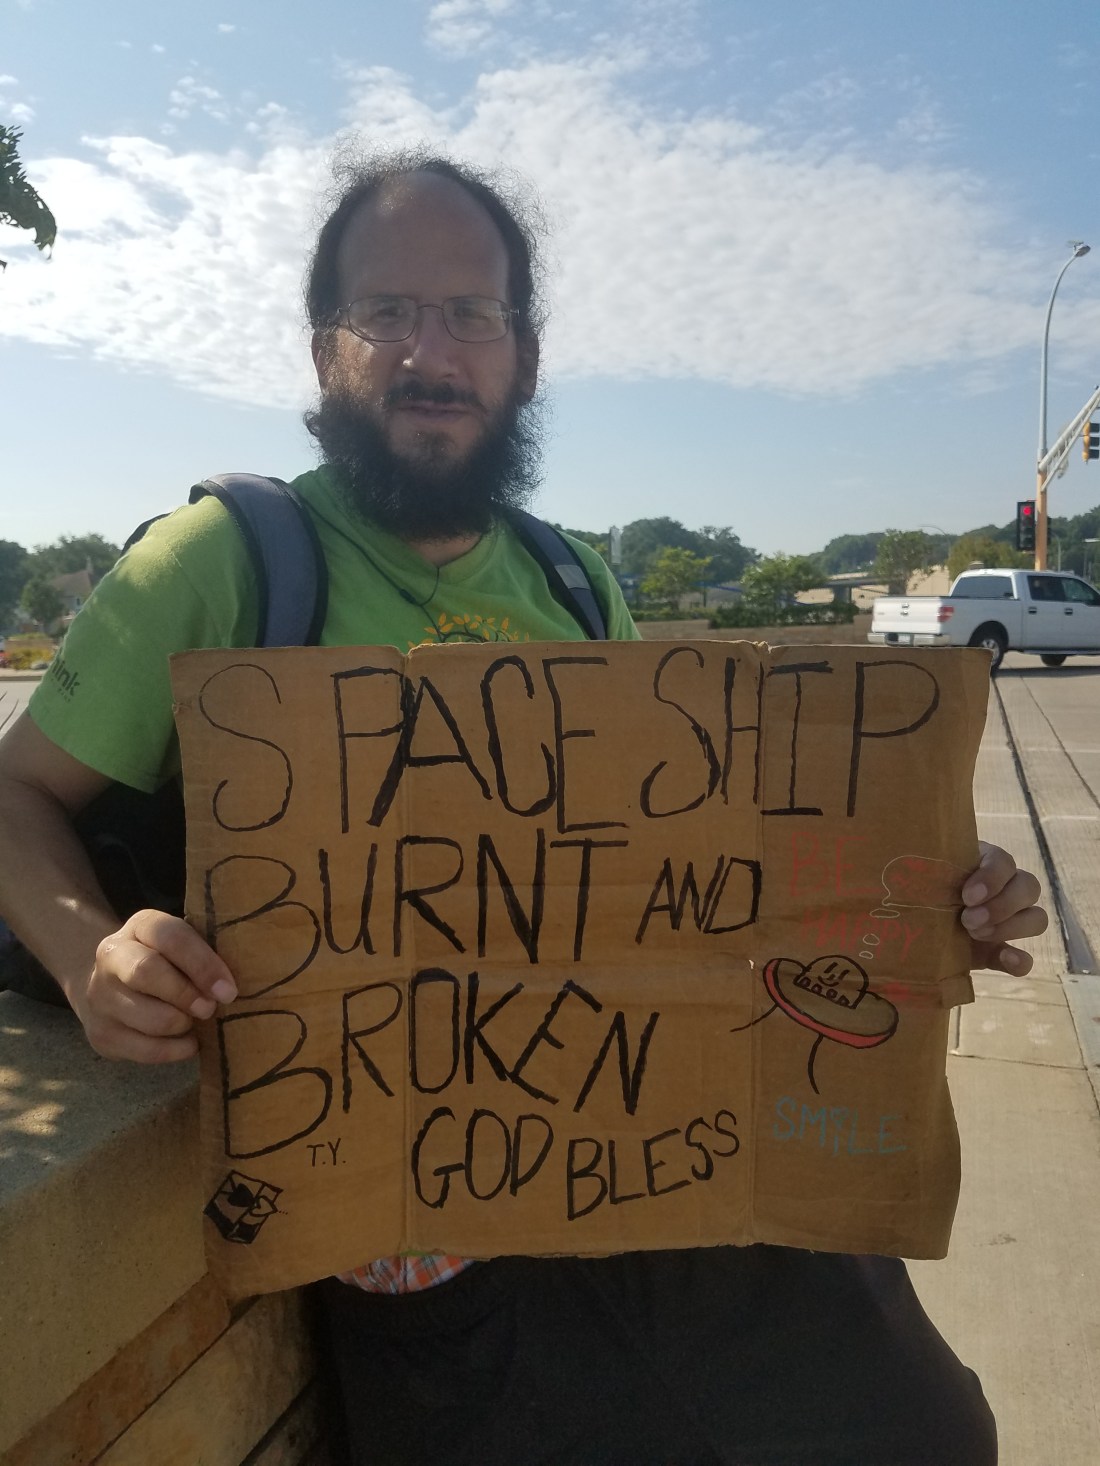 SPACESHIP
BURNT AND
BROKEN
T.Y.
GOD BLESS
BE
HAPPY
SMILE
link